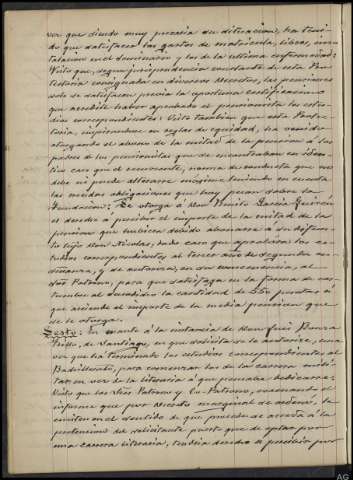 ver que siendo muy precaria su situacion, ha teni-
do que satisfacer los gastos de matricula, libros, ins-
talacion en el Seminario y los de la ultima enfermedad:
Visto que, segun jurisprudencia constante de esta Pro-
tectoria consignada en diversos decretos, las pensiones
solo se satisfacen previa la oportuna certificacion
que acredite haber aprobado el pensionista los estu-
dios correspondientes: Visto tambien que esta Protec-
toria, inspirandose en reglas de equidad, ha venido
otorgando el abono de la mitad de la pension á los
padres de los pensionistas que se encontraban en iden-
tico caso que el recurrente, norma de conducta que no
debe ni puede alterarse maxime teniendo en cuenta
las crecidas obligaciones que hoy pesan sobre la
Fundacion: Se otorga á Don Benito Garcia
el derecho á percibir el importe de la mitad de la
pension que hubiera debido abonarse á su difun-
to hijo Don Nicolas, dado caso que aprobara los es-
tudios correspondientes al tercer año de segunda en-
señanza, y se autoriza, en su consecuencia, al
Patrono, para que satisfaga en la forma de cos-
tumbre al susodicho la cantidad de 250 pesetas á
que asciende el importe de la media pension que
se le otorga.
Sexto: En cuanto á la instancia de Don Luis
de Santiago, en que solicita se le autorice, una
vez que ha terminado los estudios correspondientes al
Bachillerato, para comenzar los de la carrera mili-
tar, en vez de la literaria á que pensaba dedicarse:
Visto que los Sres Patrono y Co-Patrono, evacuando el
informe que por decreto marginal se ordenó, lo
emiten en el sentido de que procede se acceda á la
pretension del solicitante puesto que de optar por
una carrera literaria, tendria derecho á percibir por
AG